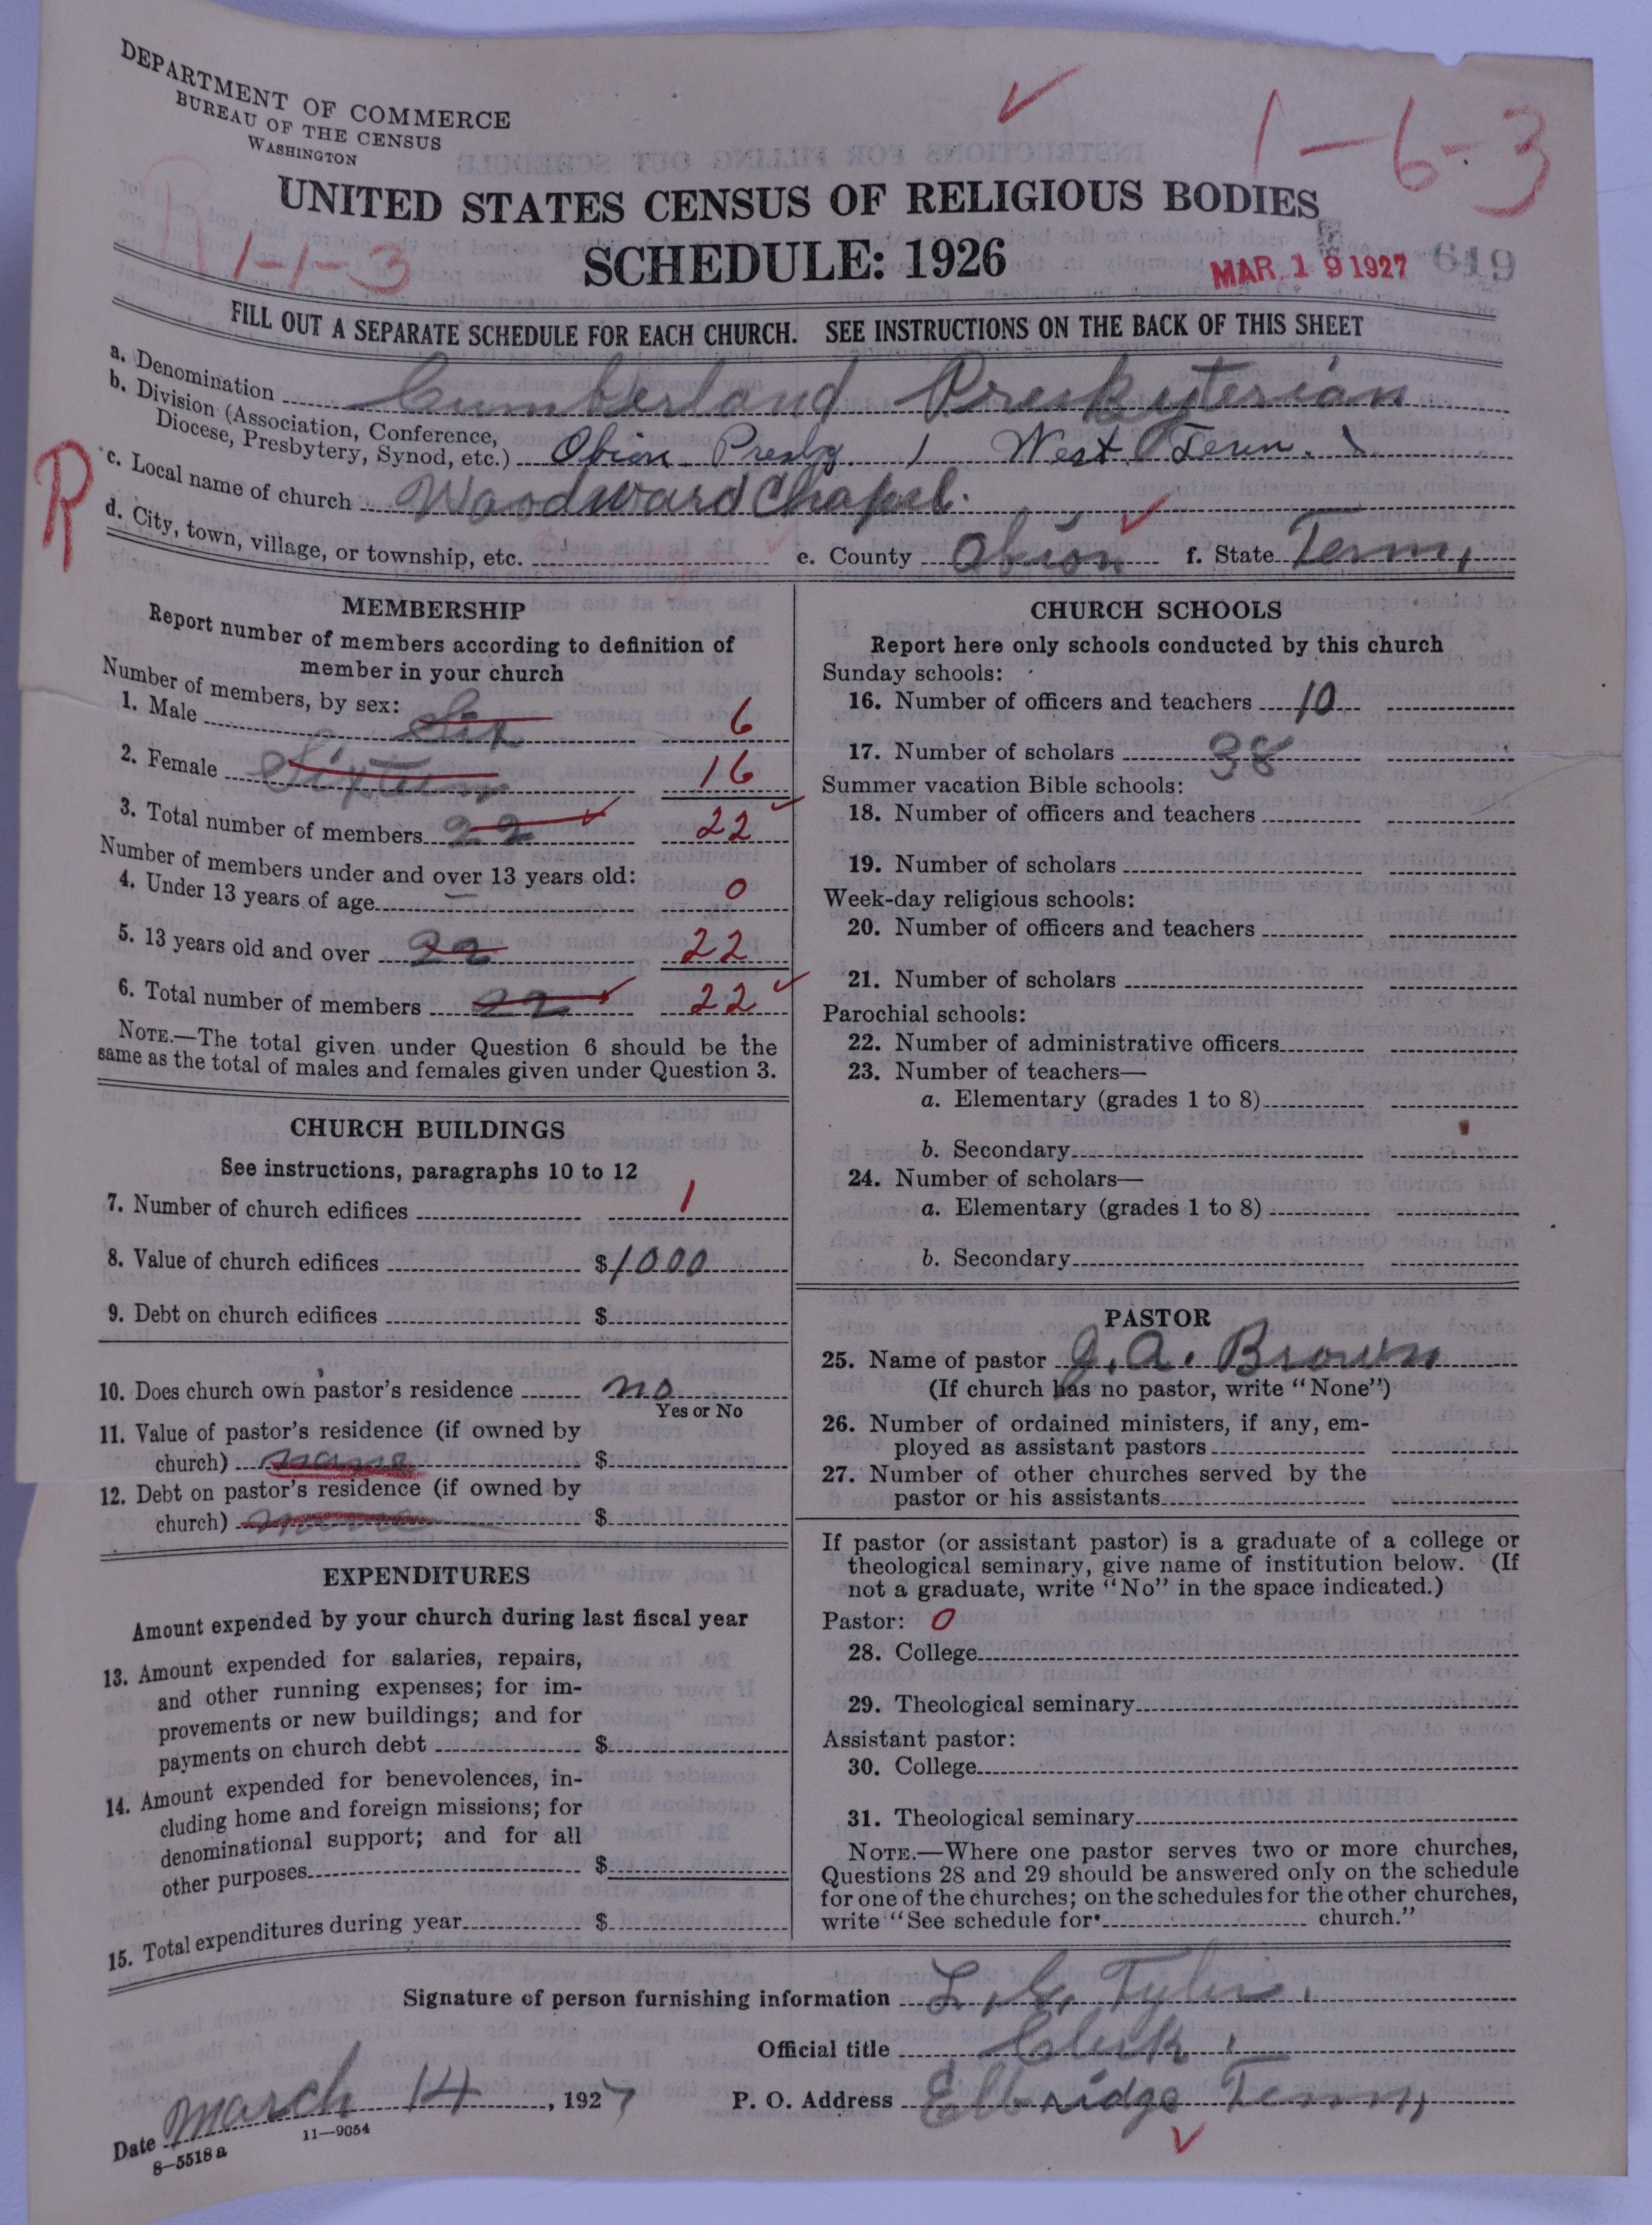 DEPARTMENT OF COMMERCE
BUREAU OF THE CENSUS
WASHINGTON
1-6-3
UNITED STATES CENSUS OF RELIGIOUS BODIES
R 1-1-3
SCHEDULE: 1926
MAR 19 1927 619
FILL OUT A SEPARATE SCHEDULE FOR EACH CHURCH. SEE INSTRUCTIONS ON THE BACK OF THIS SHEET
a. Denomination Cumberland Presbyterian
b. Division (Association, Conference,
Diocese, Presbytery, Synod, etc.) Obion Presby. / West Tenn.
R
c. Local name of church Woodward Chapel.
d. City, town, village, or township, etc. e. County Obion f. State Tenn,
MEMBERSHIP
Report number of members according to definition of
member in your church
Number of members, by sex:
1. Male Six 6
2. Female Sixteen 16
3. Total number of members 22 22
Number of members under and over 13 years old:
4. Under 13 years of age — 0
5. 13 years old and over 22 22
6. Total number of members 22 22
NOTE.—The total given under Question 6 should be the
same as the total of males and females given under Question 3.
CHURCH BUILDINGS
See instructions, paragraphs 10 to 12
7. Number of church edifices 1
8. Value of church edifices $1000
9. Debt on church edifices $
10. Does church own pastor's residence no
Yes or No
11. Value of pastor's residence (if owned by
church) none $
12. Debt on pastor's residence (if owned by
church) none $
EXPENDITURES
Amount expended by your church during last fiscal year
13. Amount expended for salaries, repairs,
and other running expenses; for im-
provements or new buildings; and for
payments on church debt $
14. Amount expended for benevolences, in-
cluding home and foreign missions; for
denominational support; and for all
other purposes $
15. Total expenditures during year $
CHURCH SCHOOLS
Report here only schools conducted by this church
Sunday schools:
16. Number of officers and teachers 10
17. Number of scholars 38
Summer vacation Bible schools:
18. Number of officers and teachers
19. Number of scholars
Week-day religious schools:
20. Number of officers and teachers
21. Number of scholars
Parochial schools:
22. Number of administrative officers
23. Number of teachers—
a. Elementary (grades 1 to 8)
b. Secondary
24. Number of scholars—
a. Elementary (grades 1 to 8)
b. Secondary
PASTOR
25. Name of pastor J. A. Brown
(If church has no pastor, write "None")
26. Number of ordained ministers, if any, em-
ployed as assistant pastors
27. Number of other churches served by the
pastor or his assistants
If pastor (or assistant pastor) is a graduate of a college or
theological seminary, give name of institution below. (If
not a graduate, write "No" in the space indicated.)
Pastor: 0
28. College
29. Theological seminary
Assistant pastor:
30. College
31. Theological seminary
NOTE.—Where one pastor serves two or more churches,
Questions 28 and 29 should be answered only on the schedule
for one of the churches; on the schedules for the other churches,
write "See schedule for church."
Signature of person furnishing information Tyler.
Official title Clerk.
Date March 14, 1927 P. O. Address Elbridge Tenn,
8-5518a 11-9054